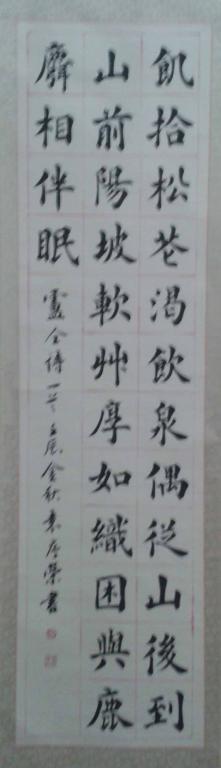 飢拾松花渴飲泉偶從山後到
山前陽坡軟艸厚如織困與鹿
麛相伴眠 盧仝詩一首 壬辰金秋 袁榮書